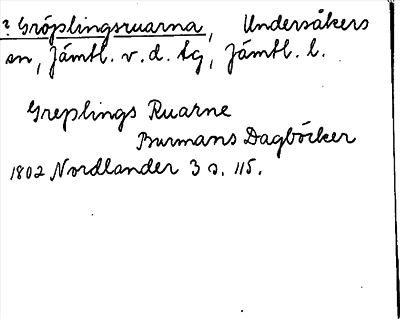 ? Gröplingsruarna, Undersåkers
sn, Jämtl. v. d. tg, Jämtl. l.
Greplings Ruarne
Burmans Dagböcker
1802 Nordlander 3 s. 115.